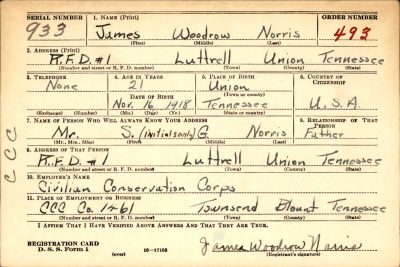 SERIAL NUMBER 1. NAME (Print) ORDER NUMBER
933 James Woodrow Norris 493
(First) (Middle) (Last)
2. ADDRESS (Print)
R.F.D. #1 Luttrell Union Tennessee
(Number and street or R. F. D. number) (Town) (County) (State)
3. TELEPHONE 4. AGE IN YEARS 5. PLACE OF BIRTH 6. COUNTRY OF CITIZENSHIP
None 21 Union
DATE OF BIRTH (Town or county)
Nov. 16 1918 Tennessee U.S.A.
(Exchange) (Number) (Mo.) (Day) (Yr.) (State or country)
7. NAME OF PERSON WHO WILL ALWAYS KNOW YOUR ADDRESS 8. RELATIONSHIP OF THAT PERSON
Mr. S. (initial only) G. Norris Father
(Mr., Mrs., Miss) (First) (Middle) (Last)
9. ADDRESS OF THAT PERSON
R.F.D. #1 Luttrell Union Tennessee
(Number and street or R. F. D. number) (Town) (County) (State)
10. EMPLOYER'S NAME
Civilian Conservation Corps
11. PLACE OF EMPLOYMENT OR BUSINESS
CCC Co. 1461 Townsend Blount Tennessee
(Number and street or R. F. D. number) (Town) (County) (State)
I AFFIRM THAT I HAVE VERIFIED ABOVE ANSWERS AND THAT THEY ARE TRUE.
REGISTRATION CARD
D. S. S. Form 1 (over) 16—17105 James Woodrow Norris
(Registrant's signature)
CCC